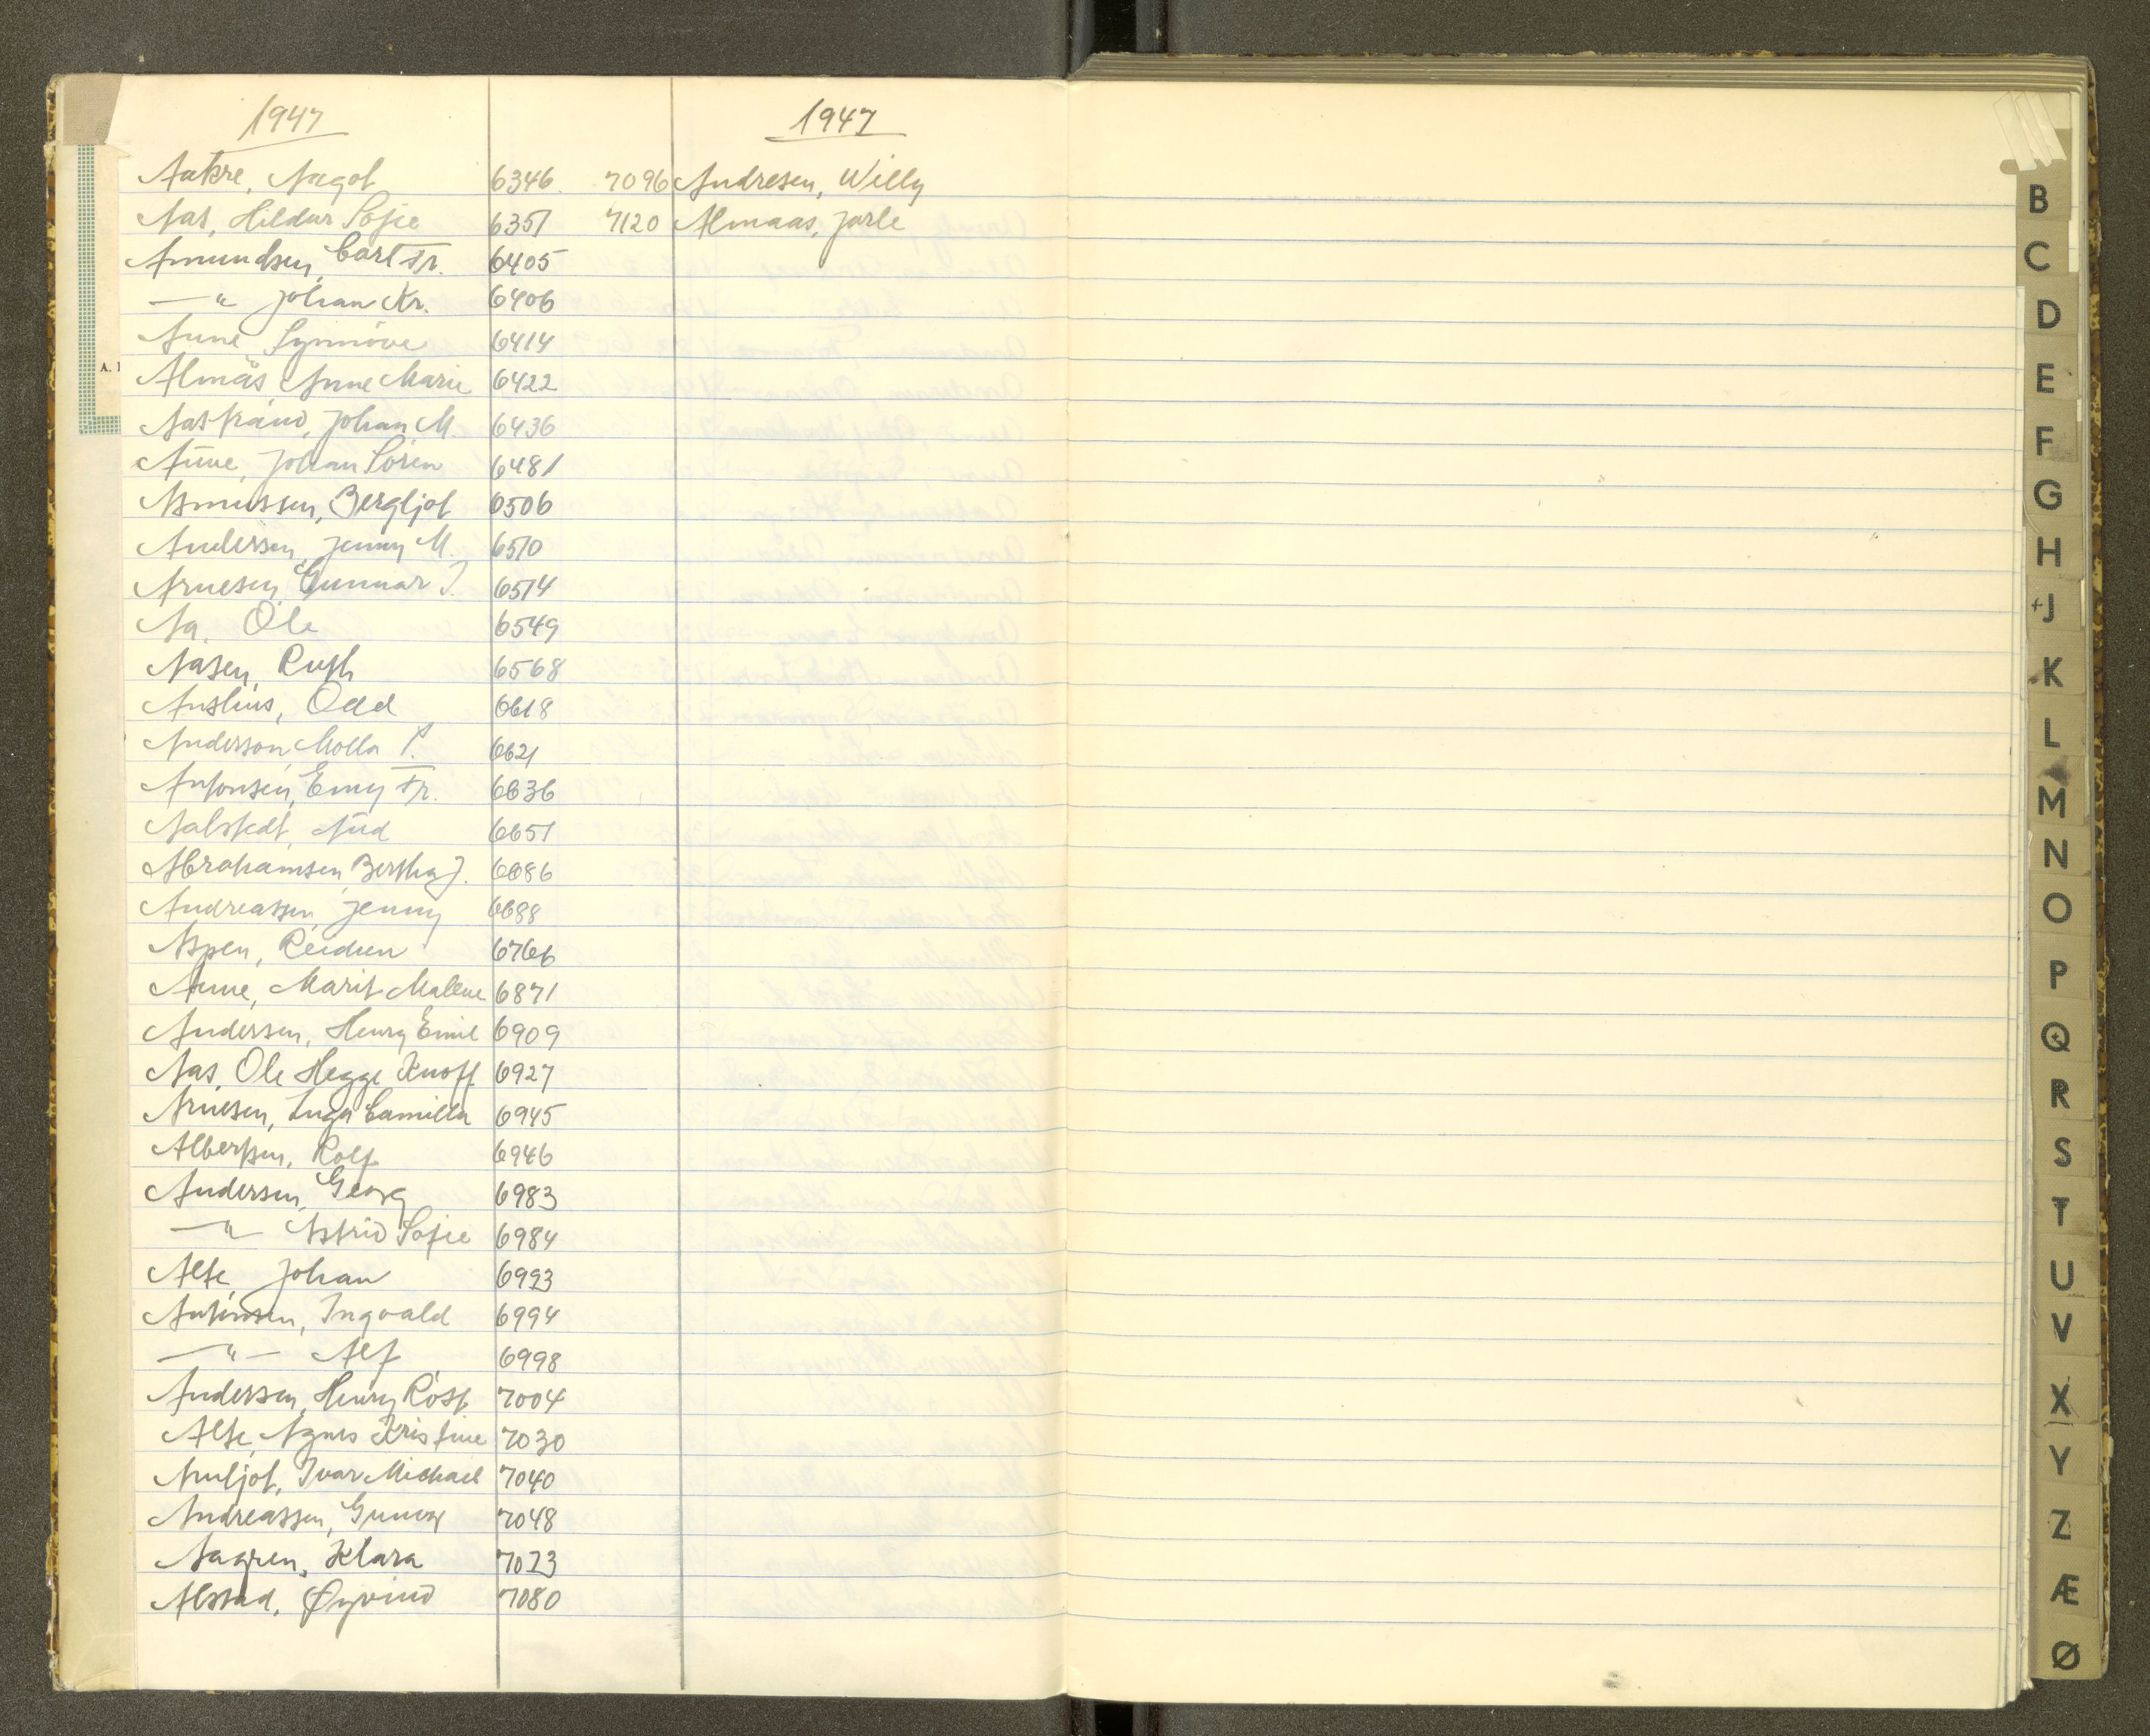 1947
Aakre, Aagot 6346
Aas, Hildur Sofie 6351
Amundsen, Carl Fr. 6405
—"— Johan Kr. 6406
Aune Synnöve 6414
Almås Anne Marie 6422
Aastrand, Johan M. 6436
Aune, Johan Sören 6481
Asmussen, Bergljot 6506
Andersen, Jenny M. 6510
Arnesen, Gunnar J. 6514
Aa, Ole 6549
Aasen, Ruth 6568
Auslius, Odd 6618
Anderson, Molla P. 6621
Antonsen, Emy Fr. 6636
Aalstedt, Aud 6651
Abrahamsen Bertha J. 6686
Andreassen, Jenny 6688
Aspen, Reidun 6766
Aune, Marit Malene 6871
Andersen, Henry Emil 6909
Aas, Ole Hegge Knoff 6927
Arnesen, Inga Camilla 6945
Albertsen, Rolf 6946
Andersen, Georg 6983
—"— Astrid Sofie 6984
Alte, Johan 6993
Antonsen, Ingvald 6994
—"— Alf 6998
Andersen, Henry Rost 7004
Alte, Agnes Kristine 7030
Arntjot, Ivar Michael 7040
Andreassen, Gunvor 7048
Aagren, Klara 7073
Alstad, Øyvind 7080
1947
7096 Andresen, Willy
7120 Almaas, Jarle
A.
B
C
D
E
F
G
H
+J
K
L
M
N
O
P
Q
R
S
T
U
V
X
Y
Z
Æ
Ø